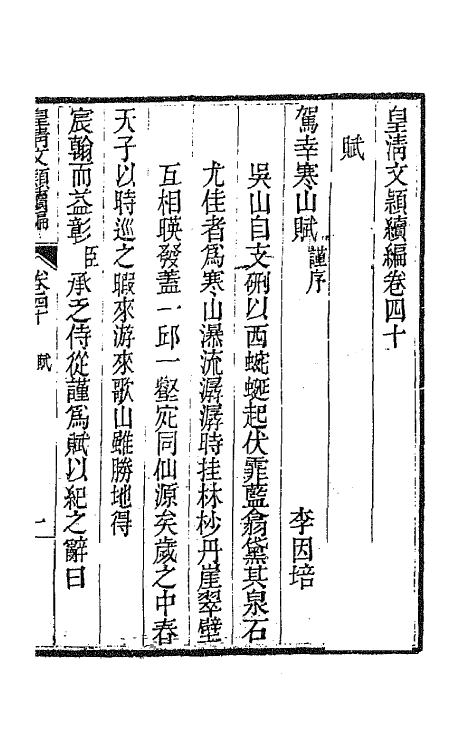 皇淸文穎續編卷四十
賦
駕幸寒山賦謹序
李因培
吳山自支硎以西蜿蜒起伏霏藍翕黛其泉石
尤佳者爲寒山瀑流潺潺時挂林杪丹崖翠壁
互相暎發蓋一邱一壑宛同仙源矣歲之中春
天子以時巡之暇來游來歌山雖勝地得
宸翰而益彰臣承乏侍從謹爲賦以紀之辭曰
皇淸文穎續編
卷四十 賦